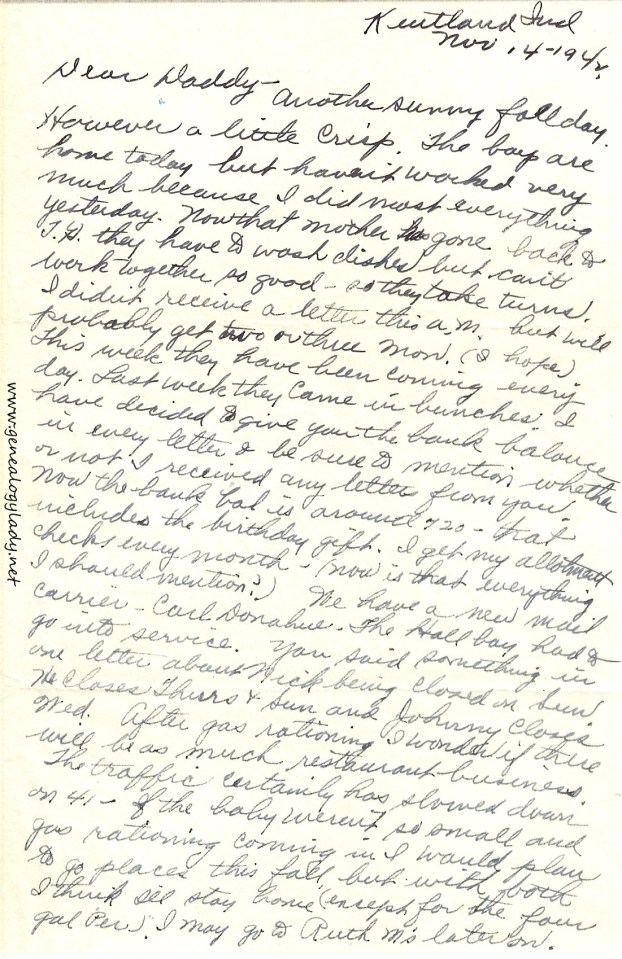 Kentland Ind
Nov. 14-1942.
Dear Daddy-
Another sunny fall day.
However a little crisp. The boys are
home today but haven't worked very
much because I did most everything
yesterday. Now that mother has gone back to
T.H. they have to wash dishes but can't
work together so good - so they take turns.
I didn't receive a letter this a.m. but will
probably get two or three Mon. (I hope)
This week they have been coming every
day. Last week they came in bunches. I
have decided to give you the bank balance
in every letter & be sure to mention whether
or not I received any letters from you.
Now the bank bal is around 720 - that
includes the birthday gift. I get my allotment
checks every month - (now is that everything
I should mention?) We have a new mail
carrier - Carl Donahue. The Hall boy had to
go into service. You said something in
one letter about Nick being closed on Sun.
He closes Thurs & Sun and Johnny closes
Wed. After gas rationing I wonder if there
will be as much restaurant business.
The traffic certainly has slowed down
on 41 - If the baby weren't so small and
gas rationing coming in I would plan
to go places this fall, but with both
I think I'll stay home (except for the four
gal per). I may go to Ruth M's later on.
www.genealogylady.net